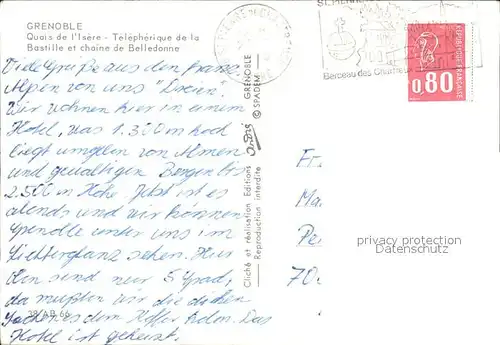 GRENOBLE
Quais de l'Isère - Téléphérique de la
Bastille et chaîne de Belledonne
Viele Grüße aus den franz.
Alpen von uns
Wir wohnen hier in einem
Hotel, was 1.300 m hoch
liegt umgeben von Almen
und gewaltigen Bergen bis
2.500 m Höhe. Jetzt ist es
abends und wir können
Grenoble unter uns im
Lichterglanz sehen. Hier
oben sind nur 5 Grad,
da mußten wir die dicken
aus dem Koffer holen. Das
Hotel ist geheizt.
38/AB 66
Cliché et réalisation Editions
Reproduction interdite
GRENOBLE
© SPADEM
Berceau des Chartreux
REPUBLIQUE FRANCAISE
0,80
Fr
Ma
Pe
70
privacy protection
Datenschutz